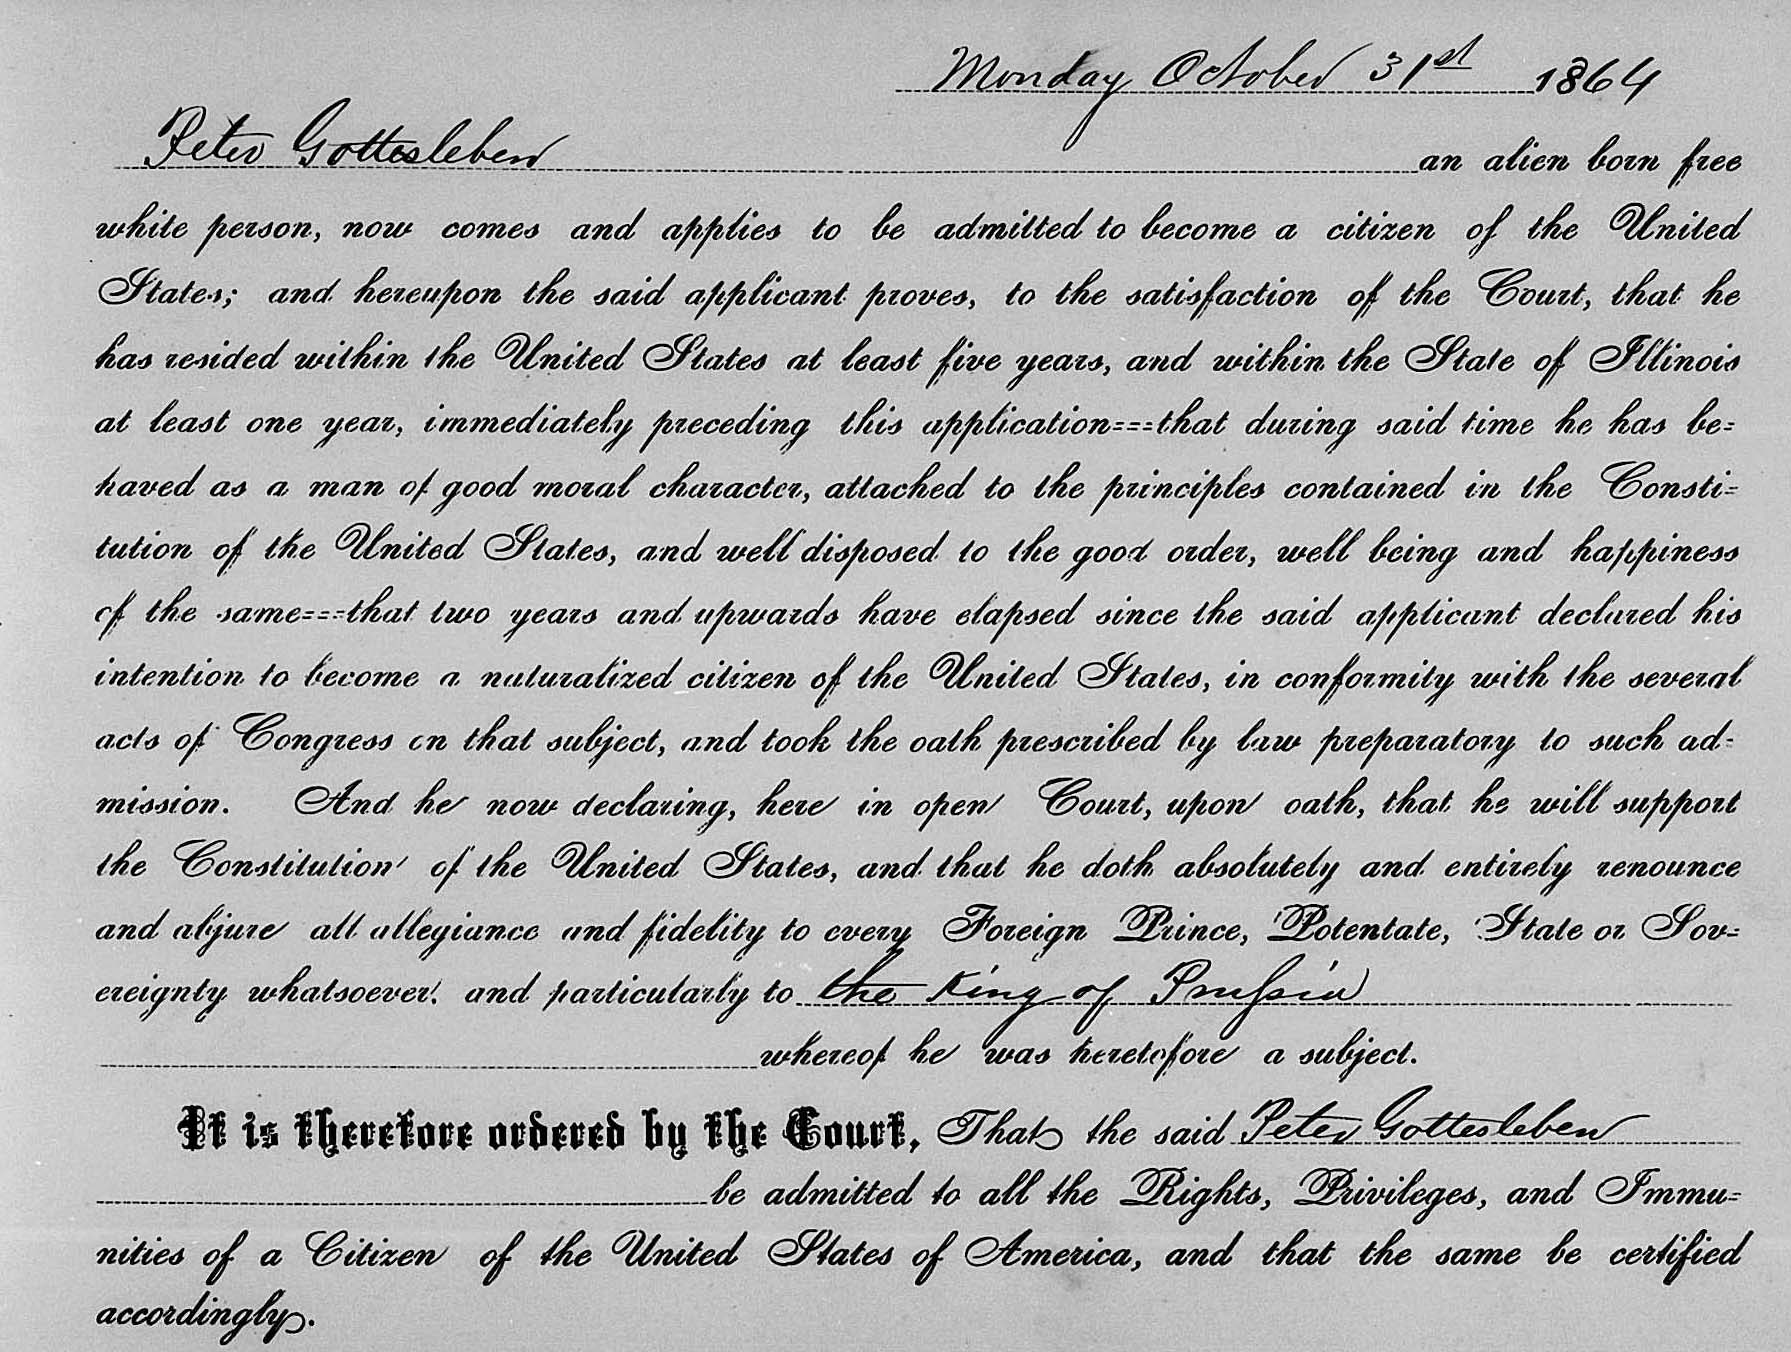 Monday October 31st 1864
Peter Gottesleben an alien born free
white person, now comes and applies to be admitted to become a citizen of the United
States; and hereupon the said applicant proves, to the satisfaction of the Court, that he
has resided within the United States at least five years, and within the State of Illinois
at least one year, immediately preceding this application===that during said time he has be=
haved as a man of good moral character, attached to the principles contained in the Consti=
tution of the United States, and well disposed to the good order, well being and happiness
of the same===that two years and upwards have elapsed since the said applicant declared his
intention to become a naturalized citizen of the United States, in conformity with the several
acts of Congress on that subject, and took the oath prescribed by law preparatory to such ad=
mission. And he now declaring, here in open Court, upon oath, that he will support
the Constitution of the United States, and that he doth absolutely and entirely renounce
and abjure all allegiance and fidelity to every Foreign Prince, Potentate, State or Sov=
ereignty whatsoever, and particularly to the King of Prussia
whereof he was heretofore a subject.
It is therefore ordered by the Court, That the said Peter Gottesleben
be admitted to all the Rights, Privileges, and Immu=
nities of a Citizen of the United States of America, and that the same be certified
accordingly.